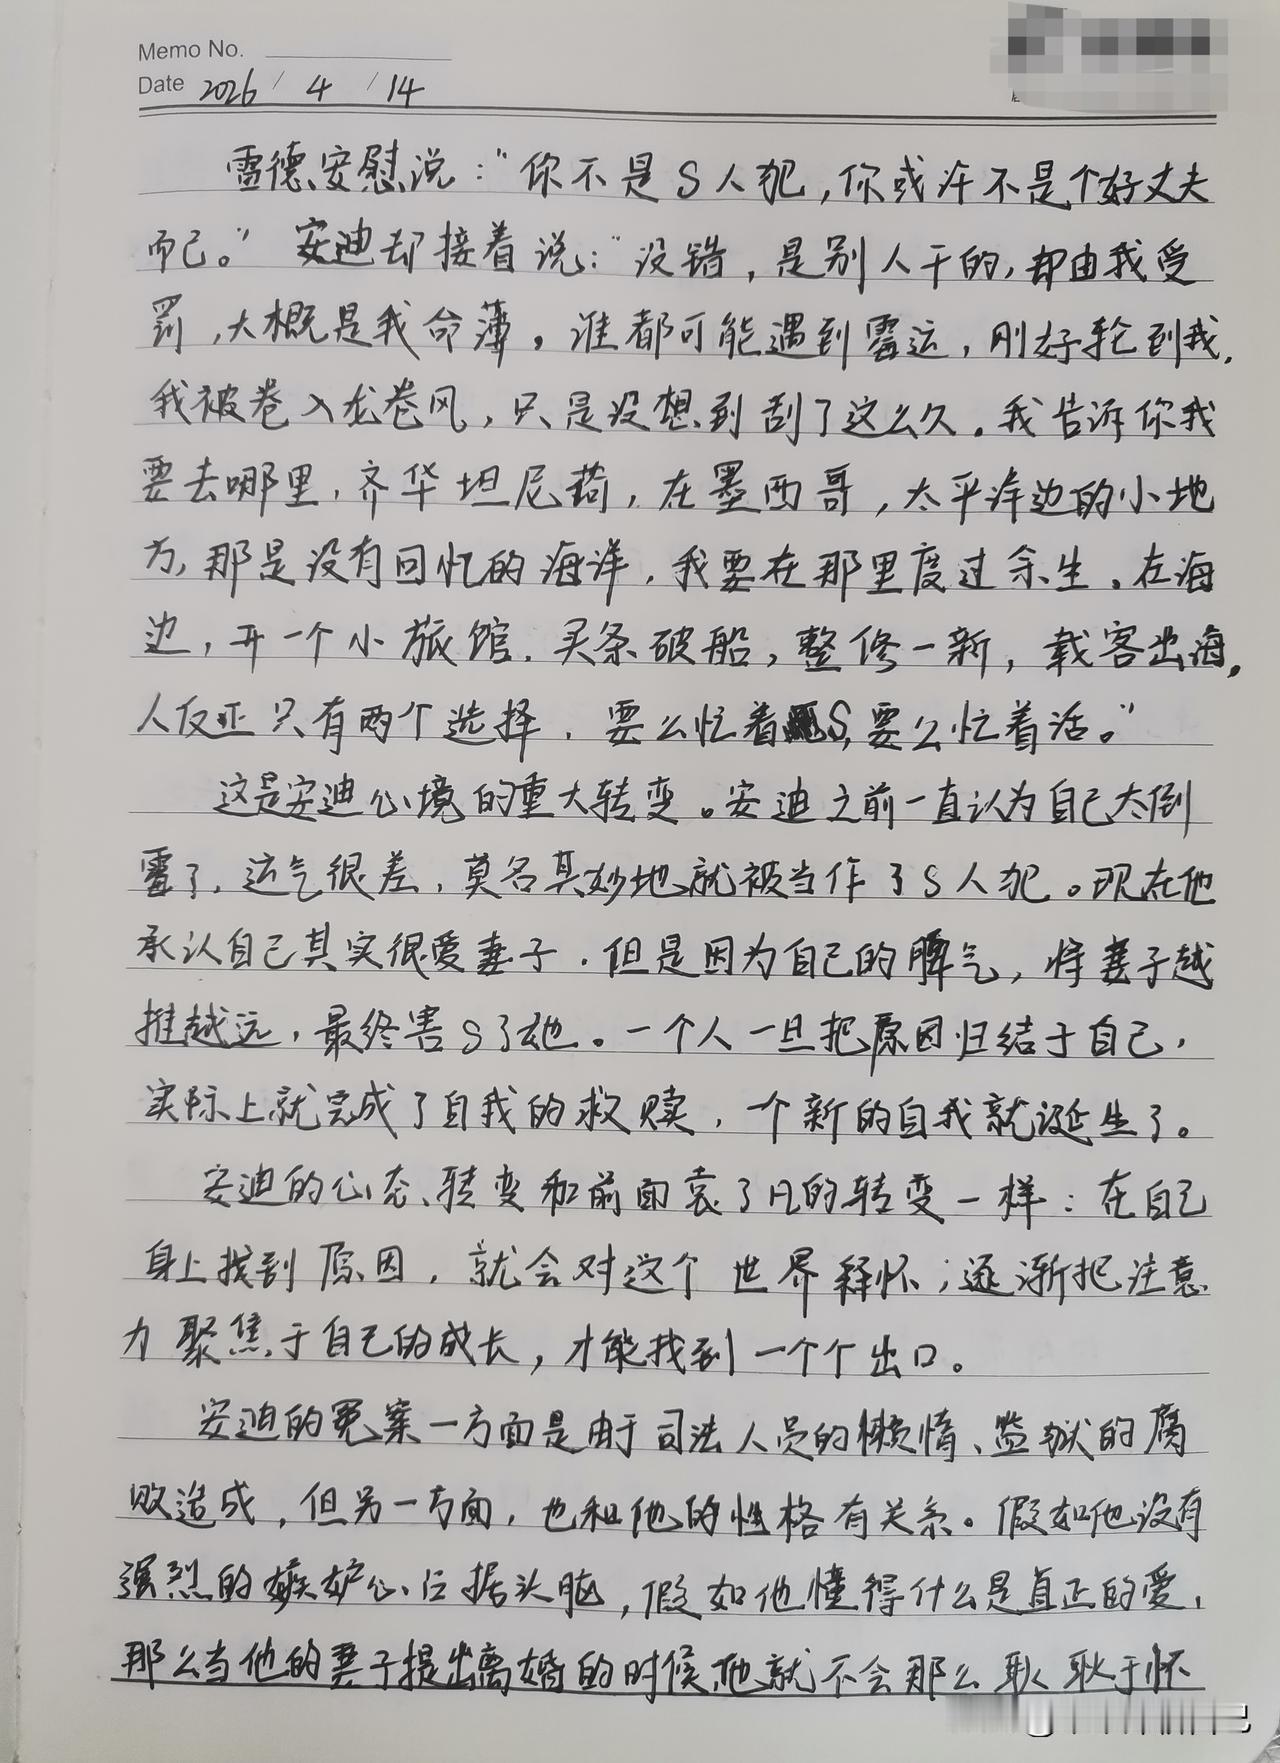 Memo No.
Date 2026 / 4 / 14
雷德安慰说：“你不是S人犯，你或许不是个好丈夫
而已。”安迪却接着说：“没错，是别人干的，却由我受
罚，大概是我命薄。谁都可能遇到霉运，刚好轮到我，
我被卷入龙卷风，只是没想到刮了这么久。我告诉你我
要去哪里，齐华坦尼荷，在墨西哥，太平洋边的小地
方，那是没有回忆的海洋，我要在那里度过余生。在海
边，开一个小旅馆，买条破船，整修一新，载客出海，
人反正只有两个选择，要么忙着S，要么忙着活。”
这是安迪心境的重大转变。安迪之前一直认为自己太倒
霉了，运气很差，莫名其妙地就被当作了S人犯。现在他
承认自己其实很爱妻子，但是因为自己的脾气，将妻子越
推越远，最终害S了她。一个人一旦把原因归结于自己，
实际上就完成了自我的救赎，一个新的自我就诞生了。
安迪的心态转变和前面袁了凡的转变一样：在自己
身上找到原因，就会对这个世界释怀；逐渐把注意
力聚焦于自己的成长，才能找到一个个出口。
安迪的冤案一方面是由于司法人员的懒惰、监狱的腐
败造成，但另一方面，也和他的性格有关系。假如他没有
强烈的嫉妒心占据头脑，假如他懂得什么是真正的爱，
那么当他的妻子提出离婚的时候，他就不会那么耿耿于怀